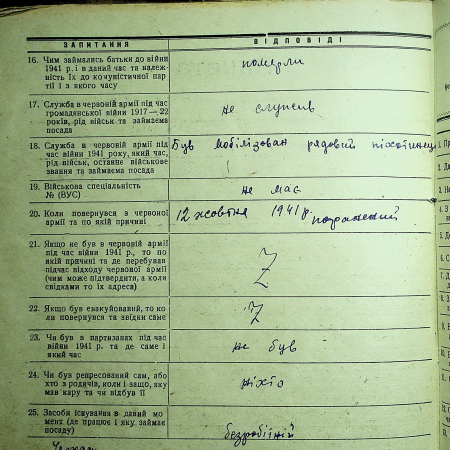 ЗАПИТАННЯ
ВІДПОВІДІ
16. Чим займались батьки до війни
1941 р. і в даний час та належ-
ність їх до комуністичної пар
тії і з якого часу
померли
17. Служба в червоній армії під час
громадянської війни 1917—22
років, рід військ та займаєма
посада
не служив
18. Служба в червоній армії під
час війни 1941 року, який час,
рід військ, останнє військове
звання та займаєма посада
був мобілізован рядовий піхотинець
19. Військова спеціальність
№ (ВУС)
не має
20. Коли повернувся з червоної
армії та по якій причині
12 жовтня 1941 р.
21. Якщо не був в червоній армії
під час війни 1941 р., то по
якій причині та де перебував
підчас відходу червоної армії
(чим може підтвердити, а коли
свідками то їх адреса)
Z
22. Якщо був евакуйований, то ко
ли повернувся та звідки саме
Z
23. Чи був в партизанах під час
війни 1941 р. та де саме і
який час
не був
24. Чи був репресований сам, або
хто з родичів, коли і защо, яку
мав кару та чи відбув її
ніхто
25. Засоби існування в даний мо
мент (де працює і яку займає
посаду)
безробітній